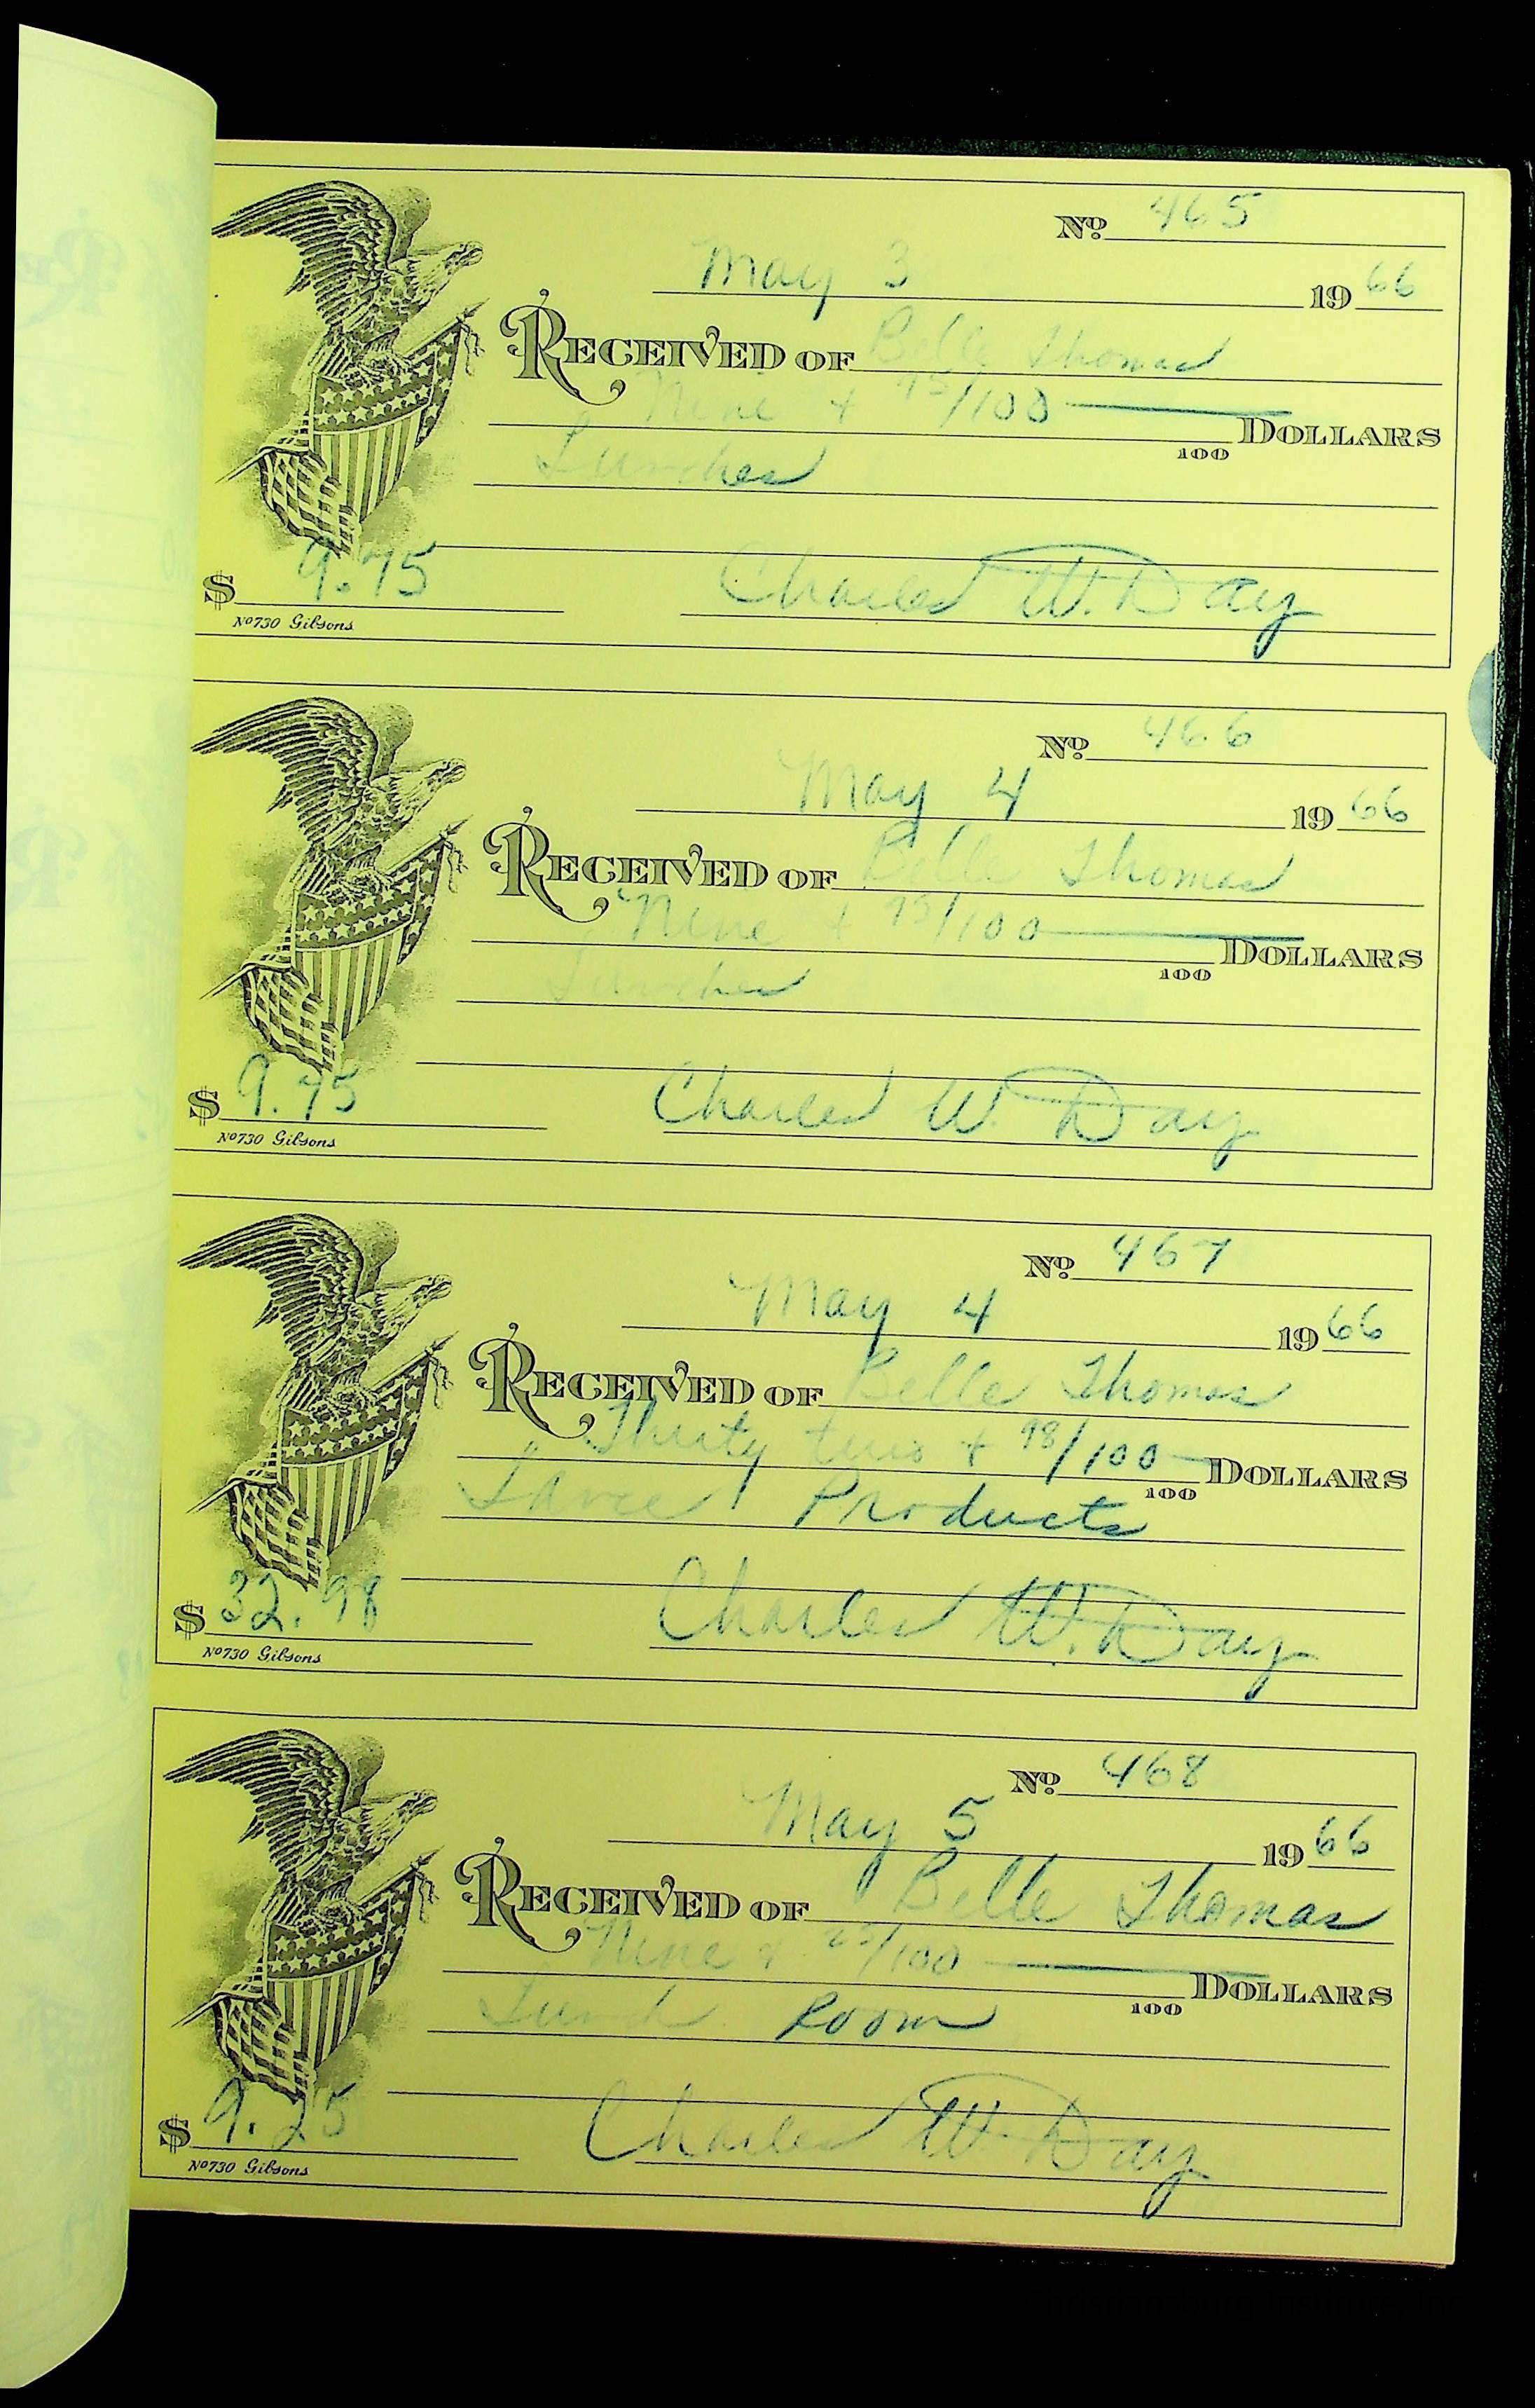 No 465
May 3 1966
RECEIVED OF Belle Thomas
Nine + 75/100
100 DOLLARS
Lunches
$ 9.75 Charles W. Day
No 730 Gibsons
No 466
May 4 1966
RECEIVED OF Belle Thomas
Nine + 75/100
100 DOLLARS
Lunches
$ 9.75 Charles W. Day
No 730 Gibsons
No 467
May 4 1966
RECEIVED OF Belle Thomas
Thirty two + 98/100
100 DOLLARS
Lance Products
$ 32.98 Charles W. Day
No 730 Gibsons
No 468
May 5 1966
RECEIVED OF Belle Thomas
Nine + 25/100
100 DOLLARS
Lunch Room
$ 9.25 Charles W. Day
No 730 Gibsons